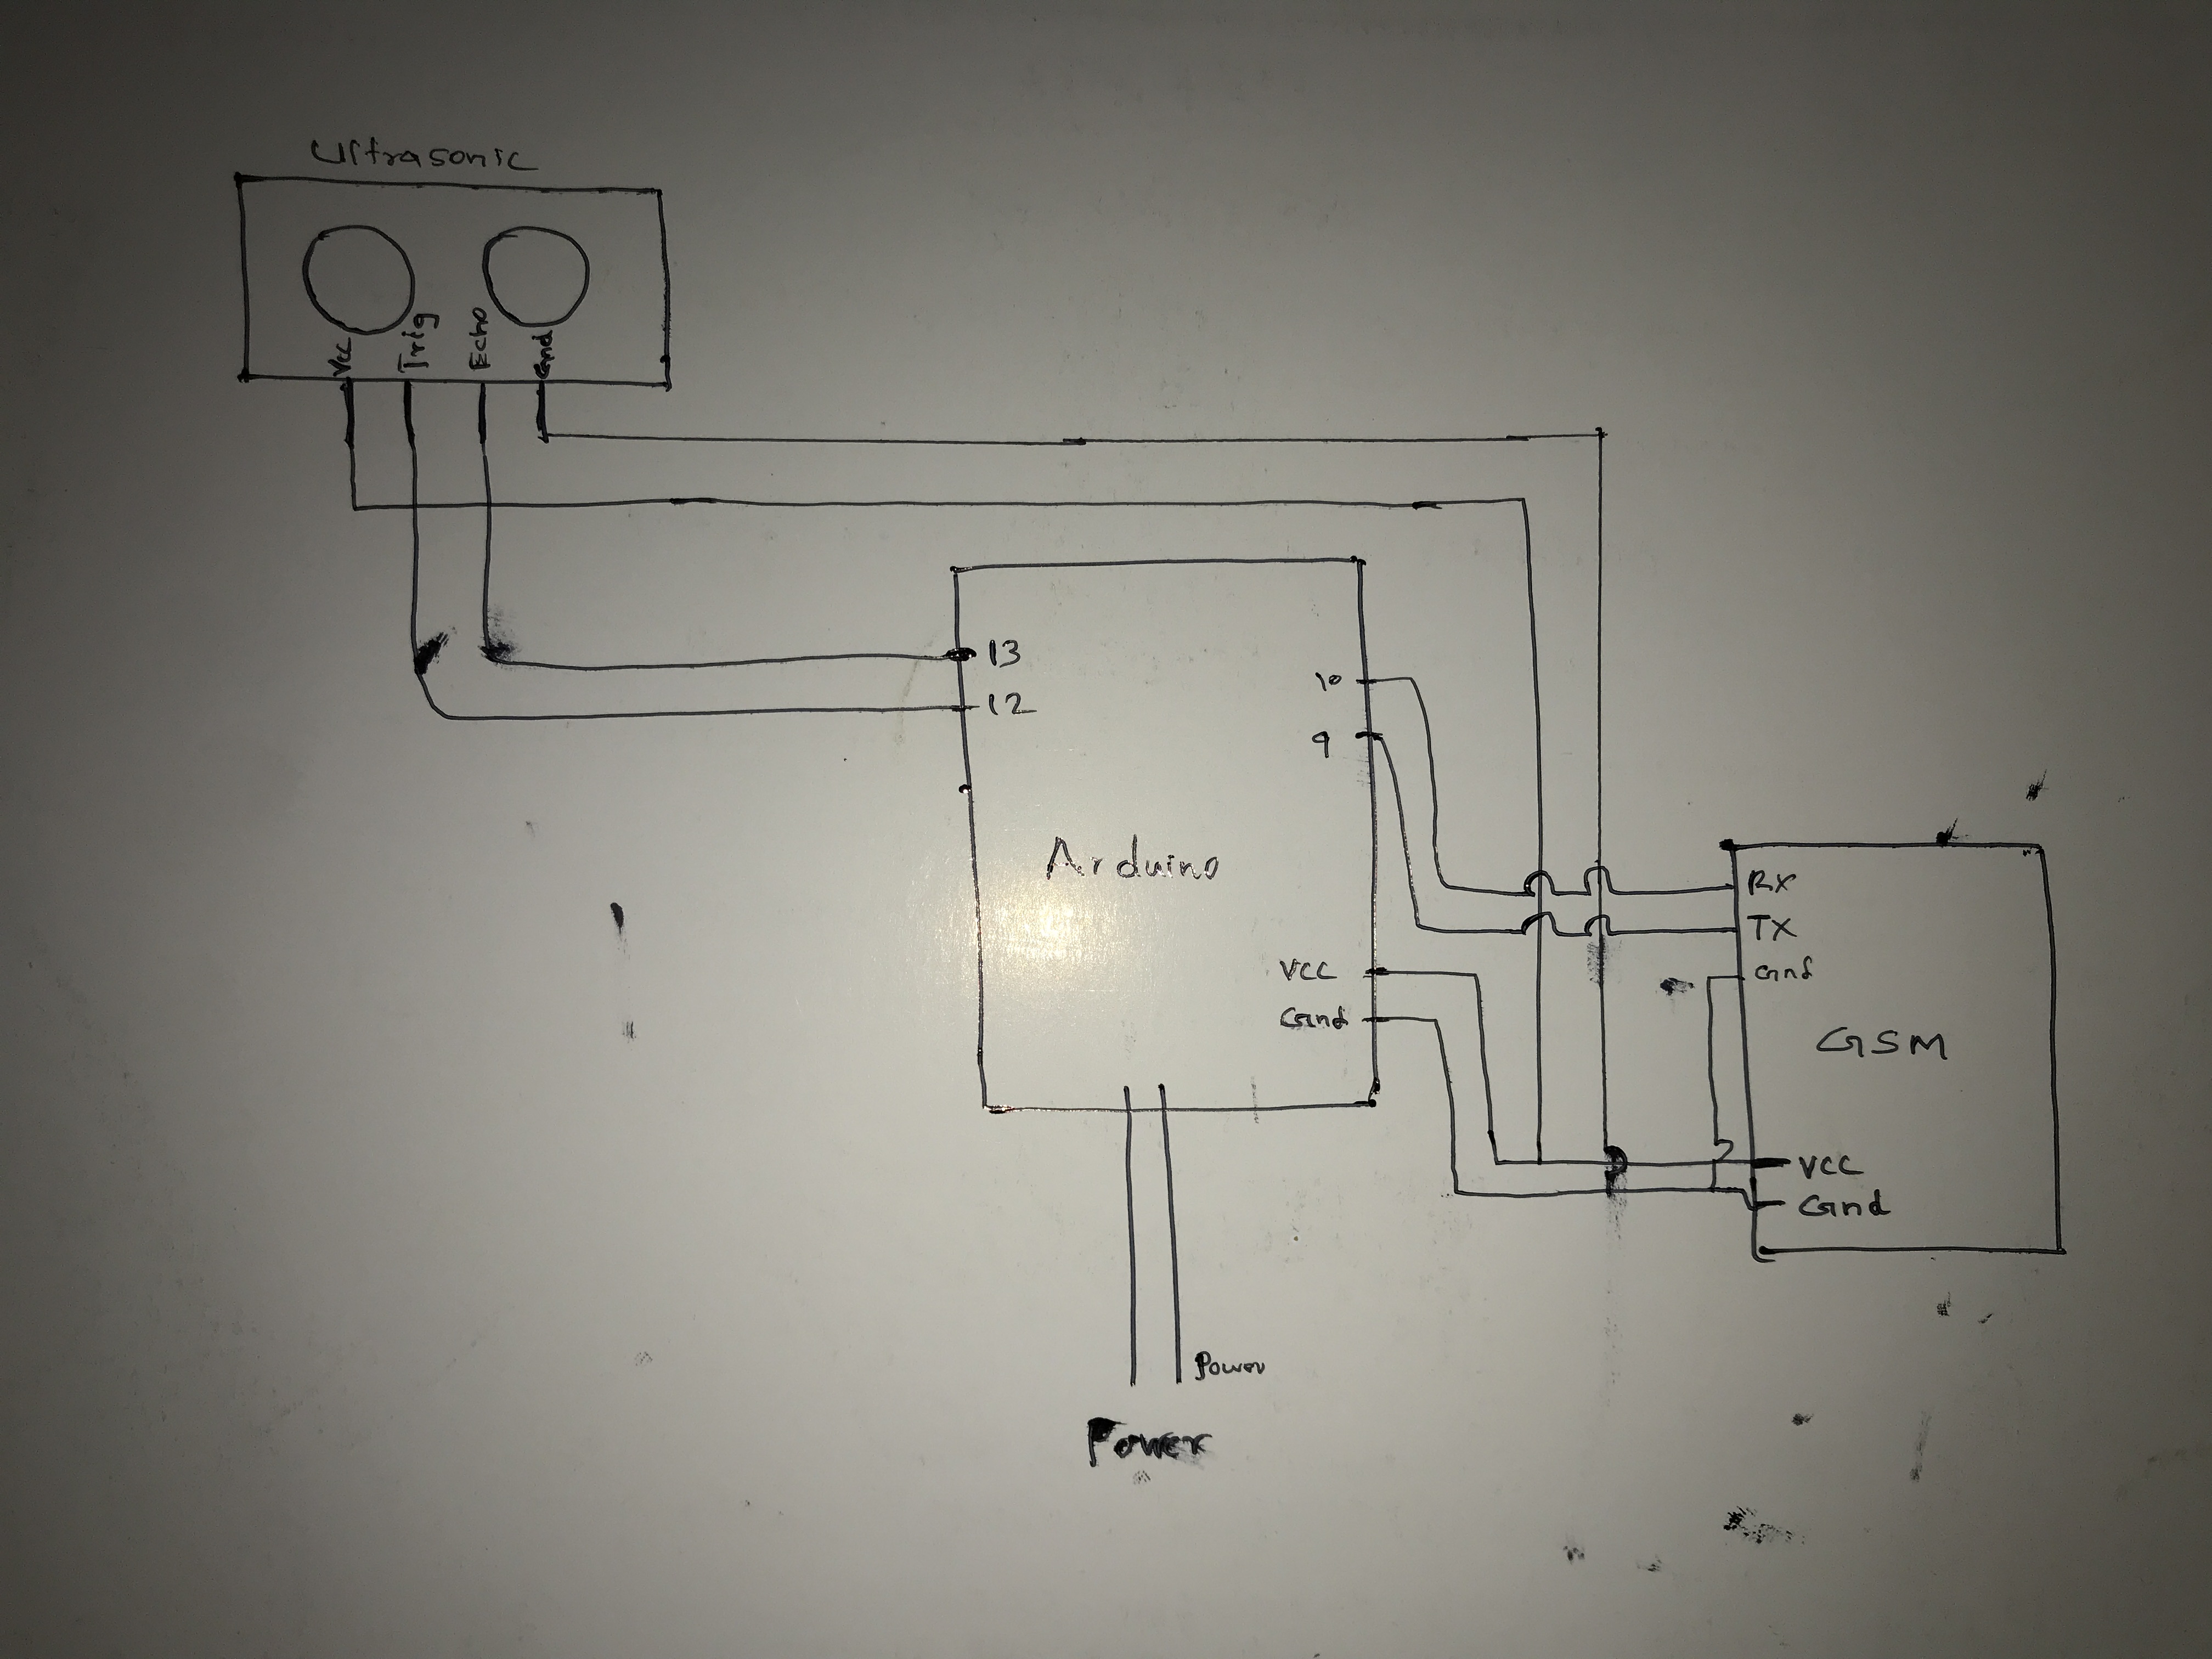 Ultrasonic
Vcc
Trig
Echo
Gnd
13
12
Arduino
10
9
Vcc
Gnd
Power
Power
Rx
Tx
Gnd
Vcc
Gnd
GSM